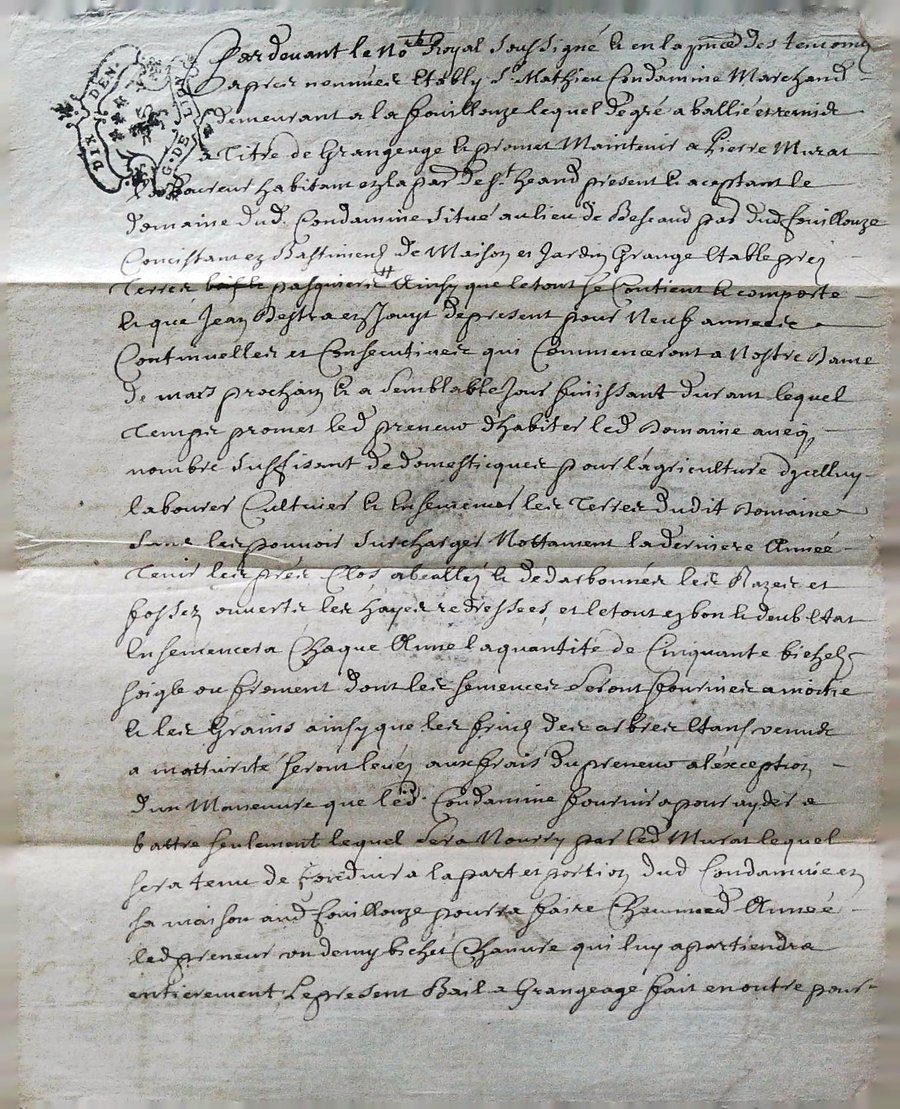 DIX DEN.
G. DE LION
Par devant le No.re Royal Soussigné & en la pnce des temoins
apres nommez Etably Sr Mathieu Condamine Marchand
demeurant a la fouillouze lequel de gré a ballié et remis
a Titre de Grangeage & promet Maintenir a Pierre Murat
Laboureur habitant en la parr de St heand present & aceptant le
domaine dud. Condamine Situé au lieu de Besseaud parr dud fouillouze
Concistant en Bastiments de Maison et Jardin Grange Etable prez
Terres pasquiers # Ainsy que le tout se Contient & comporte
& que Jean en Jouyt de present pour Neuf années
Continuelles et Consecutives qui Commenceront a Nostre Dame
de mars prochain & a Semblable Jour finissant durant lequel
Temps promet led preneur d'habiter led Domaine aveq
nombre Suffisant de domesticques pour l'agriculture dycelluy
labourer Cultiver & Ensemencer les Terres dudit Domaine
Sans les pouvoir Surcharger Nottament la derniere Année
Tenir les prés Clos & les Razes et
fossez ouverts les hayes redressées, et le tout en bon & deub Etat
Ensemencera Chaque Anne la quantité de Cinquante bichets
soigle ou froment dont les semences Seront fournies a moitié
& les Grains ainsy que les fruits des arbres Etans venus
a matturité seront levez aux frais du preneur a l'éxception
d'un Maneuvre que led. Condamine fournira pour ayder a
battre seulement lequel Sera Nourry par led Murat lequel
sera tenu de Conduire la part et portion dud Condamine en
sa maison aud fouillouze pourra faire Année
led preneur un demy bichet Chanvre qui luy apartiendra
entierement, Le present Bail a Grangeage fait en outre pour